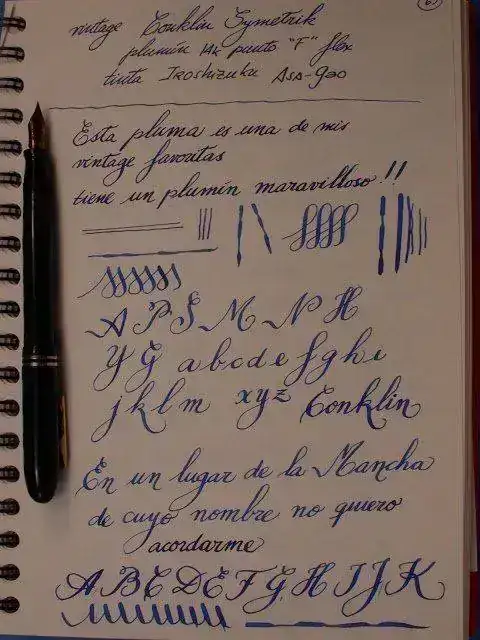 vintage Conklin Symetrik
plumín 14k punto "F" flex
tinta Iroshizuku Asa-gao
Esta pluma es una de mis
vintage favoritas
tiene un plumín maravilloso!!
A P S M N H
Y G a b c d e f g h i
j k l m x y z Conklin
En un lugar de la Mancha
de cuyo nombre no quiero
acordarme
A B C D E F G H I J K